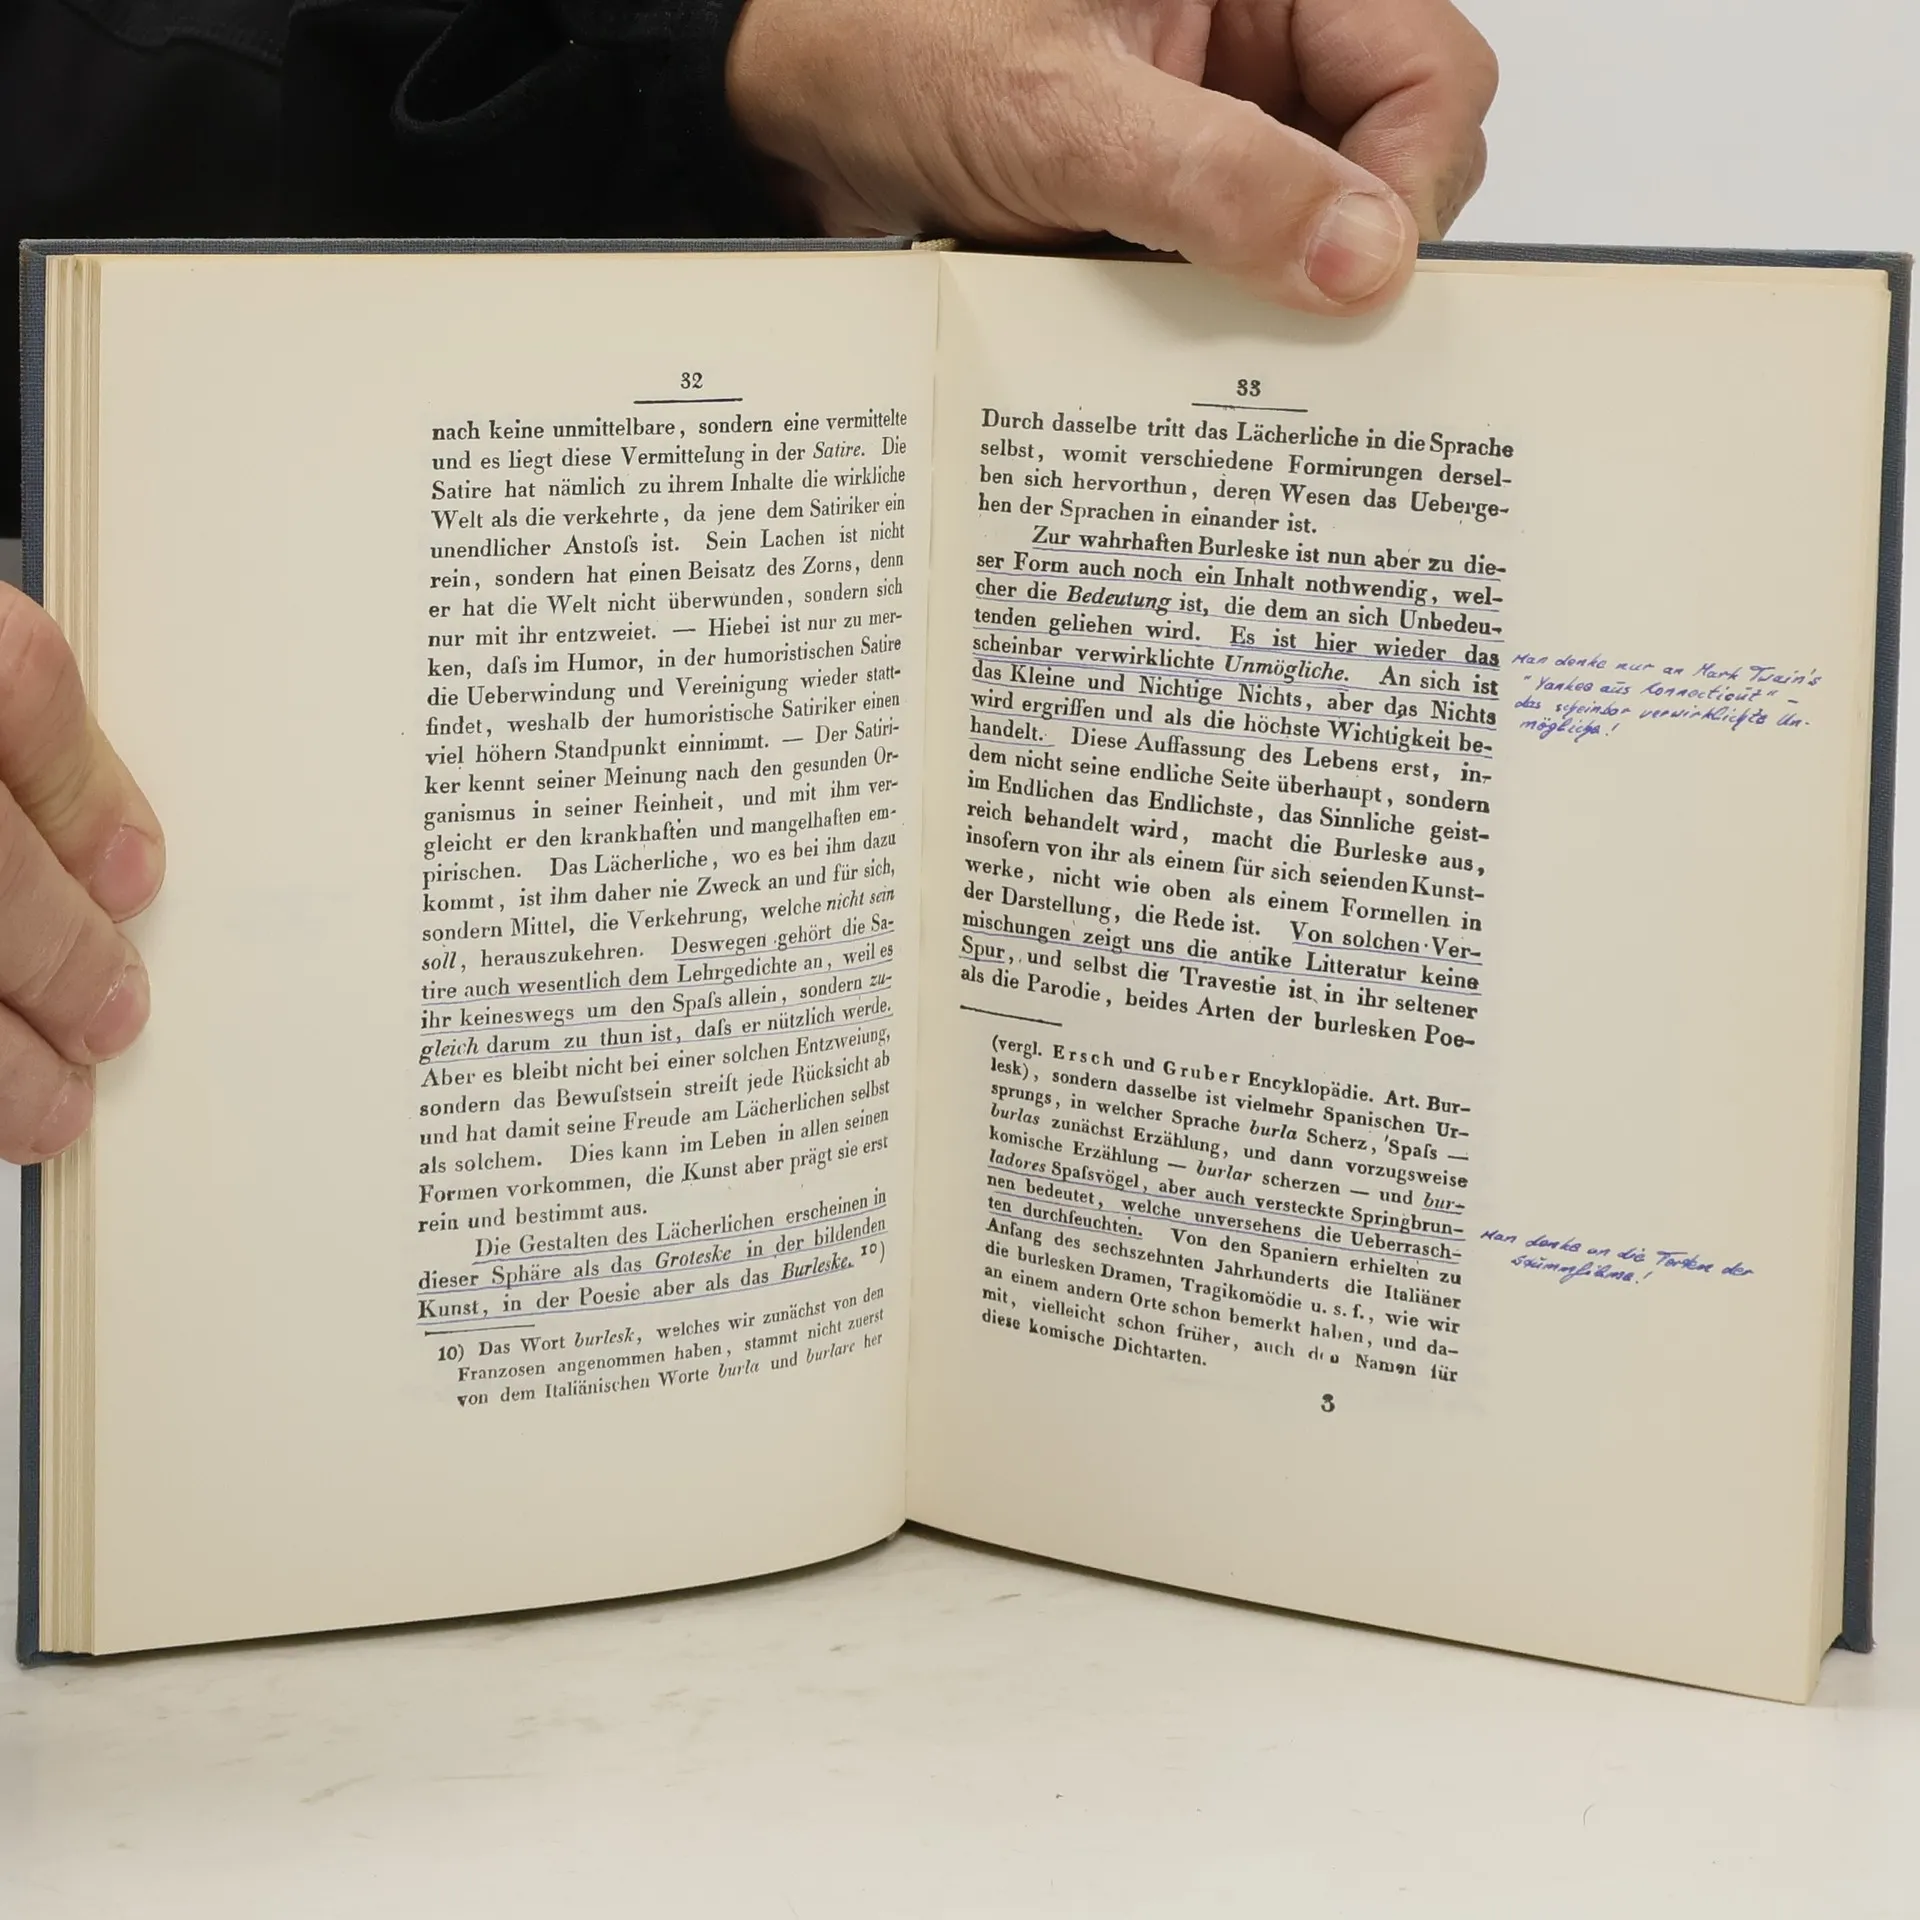 32
nach keine unmittelbare, sondern eine vermittelte
und es liegt diese Vermittelung in der Satire. Die
Satire hat nämlich zu ihrem Inhalte die wirkliche
Welt als die verkehrte, da jene dem Satiriker ein
unendlicher Anstoſs ist. Sein Lachen ist nicht
rein, sondern hat einen Beisatz des Zorns, denn
er hat die Welt nicht überwunden, sondern sich
nur mit ihr entzweiet. — Hiebei ist nur zu mer-
ken, daſs im Humor, in der humoristischen Satire
die Ueberwindung und Vereinigung wieder statt-
findet, weshalb der humoristische Satiriker einen
viel höhern Standpunkt einnimmt. — Der Satiri-
ker kennt seiner Meinung nach den gesunden Or-
ganismus in seiner Reinheit, und mit ihm ver-
gleicht er den krankhaften und mangelhaften em-
pirischen. Das Lächerliche, wo es bei ihm dazu
kommt, ist ihm daher nie Zweck an und für sich,
sondern Mittel, die Verkehrung, welche nicht sein
soll, herauszukehren. Deswegen gehört die Sa-
tire auch wesentlich dem Lehrgedichte an, weil es
ihr keineswegs um den Spaſs allein, sondern zu-
gleich darum zu thun ist, daſs er nützlich werde.
Aber es bleibt nicht bei einer solchen Entzweiung,
sondern das Bewuſstsein streift jede Rücksicht ab
und hat damit seine Freude am Lächerlichen selbst
als solchem. Dies kann im Leben in allen seinen
Formen vorkommen, die Kunst aber prägt sie erst
rein und bestimmt aus.
Die Gestalten des Lächerlichen erscheinen in
dieser Sphäre als das Groteske in der bildenden
Kunst, in der Poesie aber als das Burleske. 10)
10) Das Wort burlesk, welches wir zunächst von den
Franzosen angenommen haben, stammt nicht zuerst
von dem Italiänischen Worte burla und burlare her
33
Durch dasselbe tritt das Lächerliche in die Sprache
selbst, womit verschiedene Formirungen dersel-
ben sich hervorthun, deren Wesen das Ueberge-
hen der Sprachen in einander ist.
Zur wahrhaften Burleske ist nun aber zu die-
ser Form auch noch ein Inhalt nothwendig, wel-
cher die Bedeutung ist, die dem an sich Unbedeu-
tenden geliehen wird. Es ist hier wieder das
scheinbar verwirklichte Unmögliche. An sich ist
das Kleine und Nichtige Nichts, aber das Nichts
wird ergriffen und als die höchste Wichtigkeit be-
handelt. Diese Auffassung des Lebens erst, in-
dem nicht seine endliche Seite überhaupt, sondern
im Endlichen das Endlichste, das Sinnliche geist-
reich behandelt wird, macht die Burleske aus,
insofern von ihr als einem für sich seienden Kunst-
werke, nicht wie oben als einem Formellen in
der Darstellung, die Rede ist. Von solchen Ver-
mischungen zeigt uns die antike Litteratur keine
Spur, und selbst die Travestie ist in ihr seltener
als die Parodie, beides Arten der burlesken Poe-
(vergl. Ersch und Gruber Encyklopädie. Art. Bur-
lesk), sondern dasselbe ist vielmehr Spanischen Ur-
sprungs, in welcher Sprache burla Scherz, Spaſs —
burlas zunächst Erzählung, und dann vorzugsweise
komische Erzählung — burlar scherzen — und bur-
ladores Spaſsvögel, aber auch versteckte Springbrun-
nen bedeutet, welche unversehens die Ueberrasch-
ten durchfeuchten. Von den Spaniern erhielten zu
Anfang des sechszehnten Jahrhunderts die Italiäner
die burlesken Dramen, Tragikomödie u. s. f., wie wir
an einem andern Orte schon bemerkt haben, und da-
mit, vielleicht schon früher, auch den Namen für
diese komische Dichtarten.
3
Man denke nur an Mark Twain's
"Yankee aus Connecticut" –
das scheinbar verwirklichte Un-
mögliche!
Man denke an die Torten der
Stummfilme!